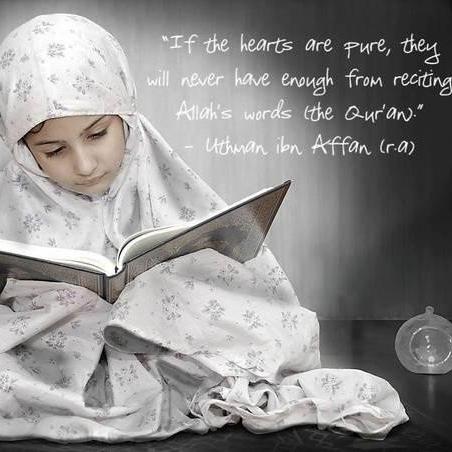 "If the hearts are pure, they
will never have enough from reciting
Allah's words (the Qur'an)."
- Uthman ibn Affan (r.a)